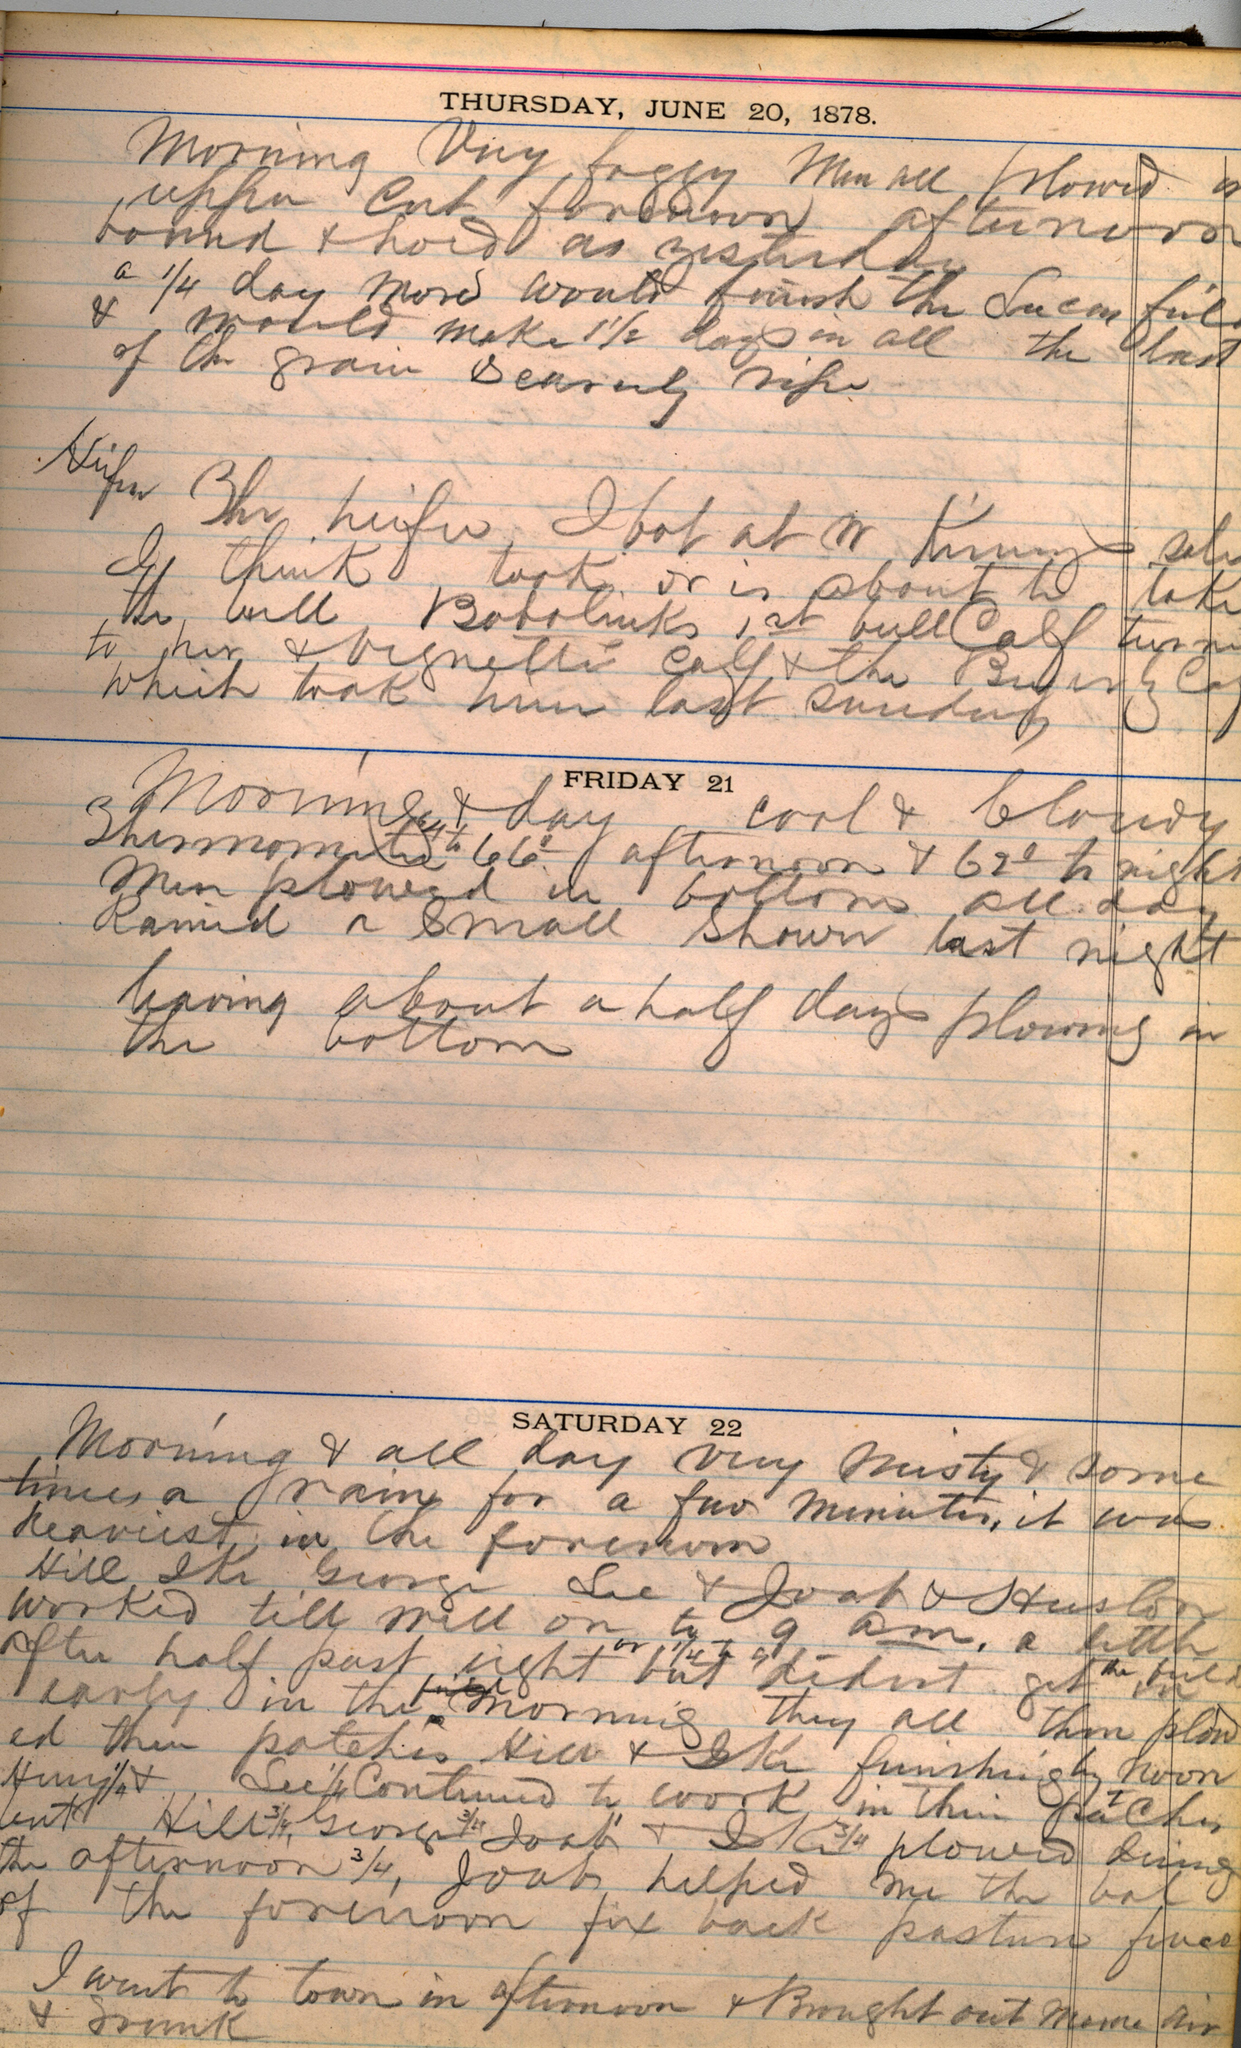 THURSDAY, JUNE 20, 1878.
Morning Very foggy Men all plowed in
upper Cut forenoon afternoon
bound & hoed as yesterday
a 1/4 day more would finish the Lucas field
& would make 1 1/2 days in all the last
of the grain Scarcely ripe
Heifer The heifer I bot at W Kinneys sale
I think took or is about to take
the bull Bobolinks 1st bull Calf turned
to her & Vignettes Calf & the Calf
which took him last sunday
FRIDAY 21
Morning & day cool & Cloudy
Thermometer 66° afternoon & 62° to night
Men plowed in bottom all day
Rained a Small Shower last night
leaving about a half days plowing in
the bottom
SATURDAY 22
Morning & all day very Misty & some
times a rain for a few Minutes, it was
heaviest in the forenoon
Hill Ike George Lee & Joab & Huston
worked till well on to 9 am. a little
after half past eight or but didnt get in the field
early in the morning they all then plow
ed their patches Hill & Ike finishing by Noon
Henry 1/4 & Lee 1/4 Continued to work in their patches
but Hill 3/4, George 3/4 Joab & Ike 3/4 plowed during
the afternoon 3/4, Joab helped me the bal
of the forenoon fix back pasture fence
I went to town in afternoon & Brought out Mame
& Trunk